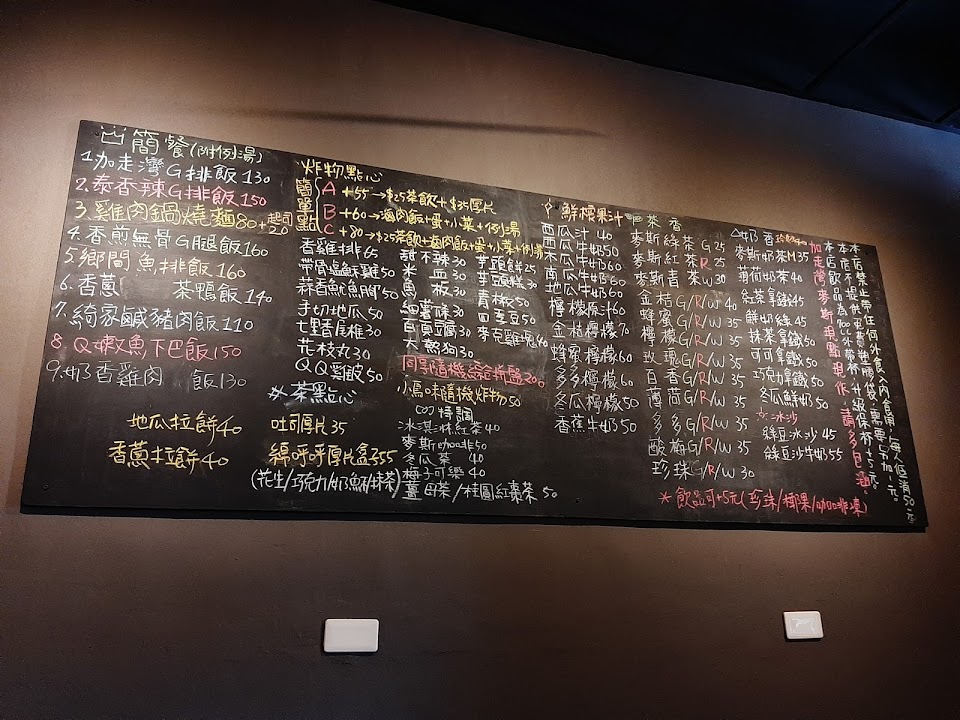 簡餐(附例湯)
1.加走灣G排飯130
2.泰香辣G排飯150
3.雞肉鍋燒麵80+起司20
4.香煎無骨G腿飯160
5.鄉間魚排飯160
6.香蔥 茶鴨飯140
7.綺家鹹豬肉飯110
8.Q嫩魚下巴飯150
9.奶香雞肉 飯130
地瓜拉餅40
香蔥拉餅40
炸物點心
簡單點
A +55→$25茶飲+$35厚片
B +60→滷肉飯+蛋+小菜+例湯
C +80→$25茶飲+滷肉飯+蛋+小菜+例湯
香雞排65
帶骨鹽酥雞50
蒜香魷魚腳50
手切地瓜50
七里香尾椎30
花枝丸30
QQ雞皮50
甜不辣30
米血30
魚板30
細薯條30
百頁豆腐30
大熱狗30
芋頭餅25
芋頭糕30
青椒50
四季豆50
麥克雞塊40
同享隨機綜合拼盤200
小鳥味隨機炸物50
※茶點心
吐司厚片35
綿呼呼厚片盒子55
(花生/巧克力/奶酥/抹茶)
特調
冰淇淋紅茶40
麥斯咖啡50
冬瓜茶40
梅子可樂40
薑母茶/桂圓紅棗茶50
鮮檸果汁
西瓜汁40
西瓜牛奶50
木瓜牛奶60
南瓜牛奶60
地瓜牛奶60
檸檬原汁60
金桔檸檬70
蜂蜜檸檬60
多多檸檬60
冬瓜檸檬50
香蕉牛奶50
茶香
麥斯綠茶G25
麥斯紅茶R25
麥斯青茶W30
金桔G/R/W40
蜂蜜G/R/W35
玫瑰G/R/W35
百香G/R/W35
薄荷G/R/W35
多多G/R/W35
酸梅G/R/W35
珍珠G/R/W30
奶香
麥斯奶茶M35
薄荷奶茶40
紅茶拿鐵45
鮮奶綠45
抹茶拿鐵50
可可拿鐵50
巧克力拿鐵50
冬瓜鮮奶50
冰沙
綠豆冰沙45
綠豆沙牛奶55
*飲品可+5元(珍珠/椰果/咖啡凍)
本店禁止帶任何外食入內食用,每人低消50元
本店不提供免費塑膠袋,需要+1元。
本店飲品為700cc外帶杯,升級保杯+5元。
加走灣麥斯現點現作,請多包涵。